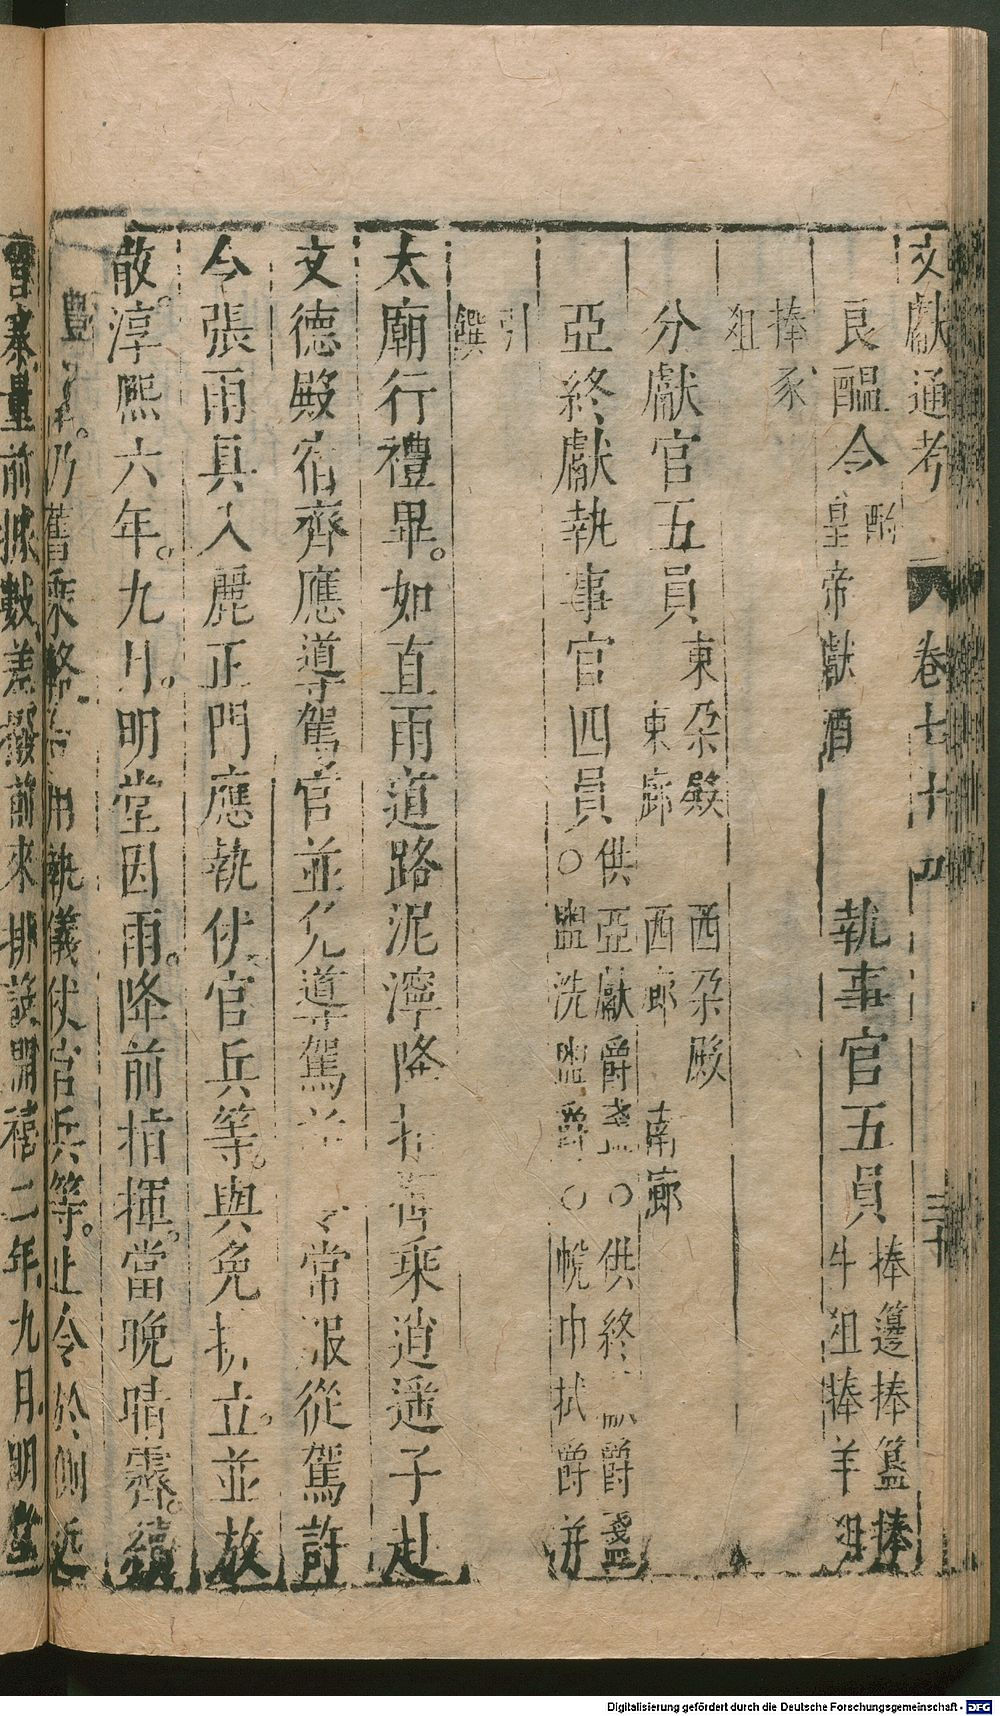 文獻通考 卷七十 三十
良醖令 酌
皇帝獻酒
執事官五員 捧籩捧簋捧
牛俎捧羊俎
捧豕
俎
分獻官五員 東朶殿 西朶殿
東廊 西廊 南廊
亞終獻執事官四員 供亞獻爵盞○供終獻爵盞
○盥洗盥爵○帨巾拭爵并
引
饌
太廟行禮畢。如直雨道路泥濘降指乘逍遥子赴
文德殿宿齊應導駕官並免導駕常服從駕許
令張雨具入麗正門應執仗官兵等。與免執立。並放
散。淳熙六年。九月。明堂因雨。降前指揮。當晚晴霽。續
乃舊乘輅用執儀仗官兵等。止令於側近
寨量前據數差撥前來排設開禧二年九月明堂
Digitalisierung gefördert durch die Deutsche Forschungsgemeinschaft - DFG